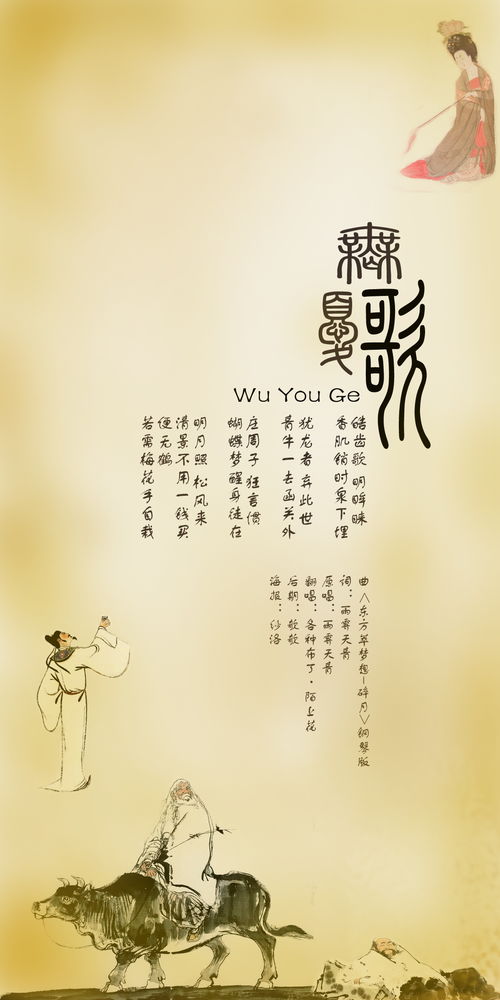 無憂歌
Wu You Ge
皓齿歌 明眸睐
香肌销时泉下埋
犹龙者 弃此世
青牛一去函关外
庄周子 狂言惯
蝴蝶梦醒身徒在
明月照 松风来
清景不用一钱买
便无鹤
若需梅花手自栽
曲〈东方萃梦想—碎月〉钢琴版
词：雨霁天青
原唱：雨霁天青
翻唱：各种布丁·陌上花
后期：歌歌
海报：沙洛